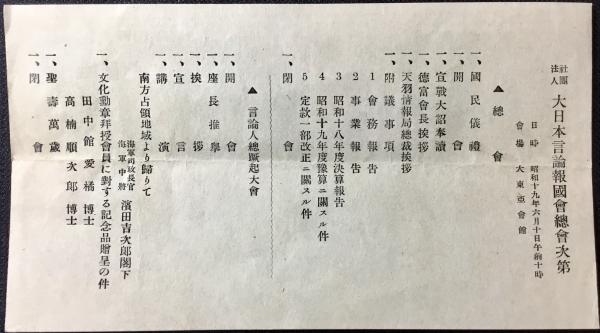 社團法人 大日本言論報國會總會次第
日時 昭和十九年六月十日午前十時
會場 大東亞會館
▲總會
一、國民儀禮
一、開會
一、宣戰大詔奉讀
一、德富會長挨拶
一、天羽情報局總裁挨拶
一、附議事項
1 會務報告
2 事業報告
3 昭和十八年度決算報告
4 昭和十九年度豫算ニ關スル件
5 定款一部改正ニ關スル件
一、閉會
▲言論人總蹶起大會
一、開會
一、座長推擧
一、挨拶
一、宣言
一、講演
南方占領地域より歸りて
海軍司政長官 海軍中將 濱田吉次郎閣下
一、文化勳章拜授會員に對する記念品贈呈の件
田中館愛橘博士
高楠順次郎博士
一、聖壽萬歲
一、閉會